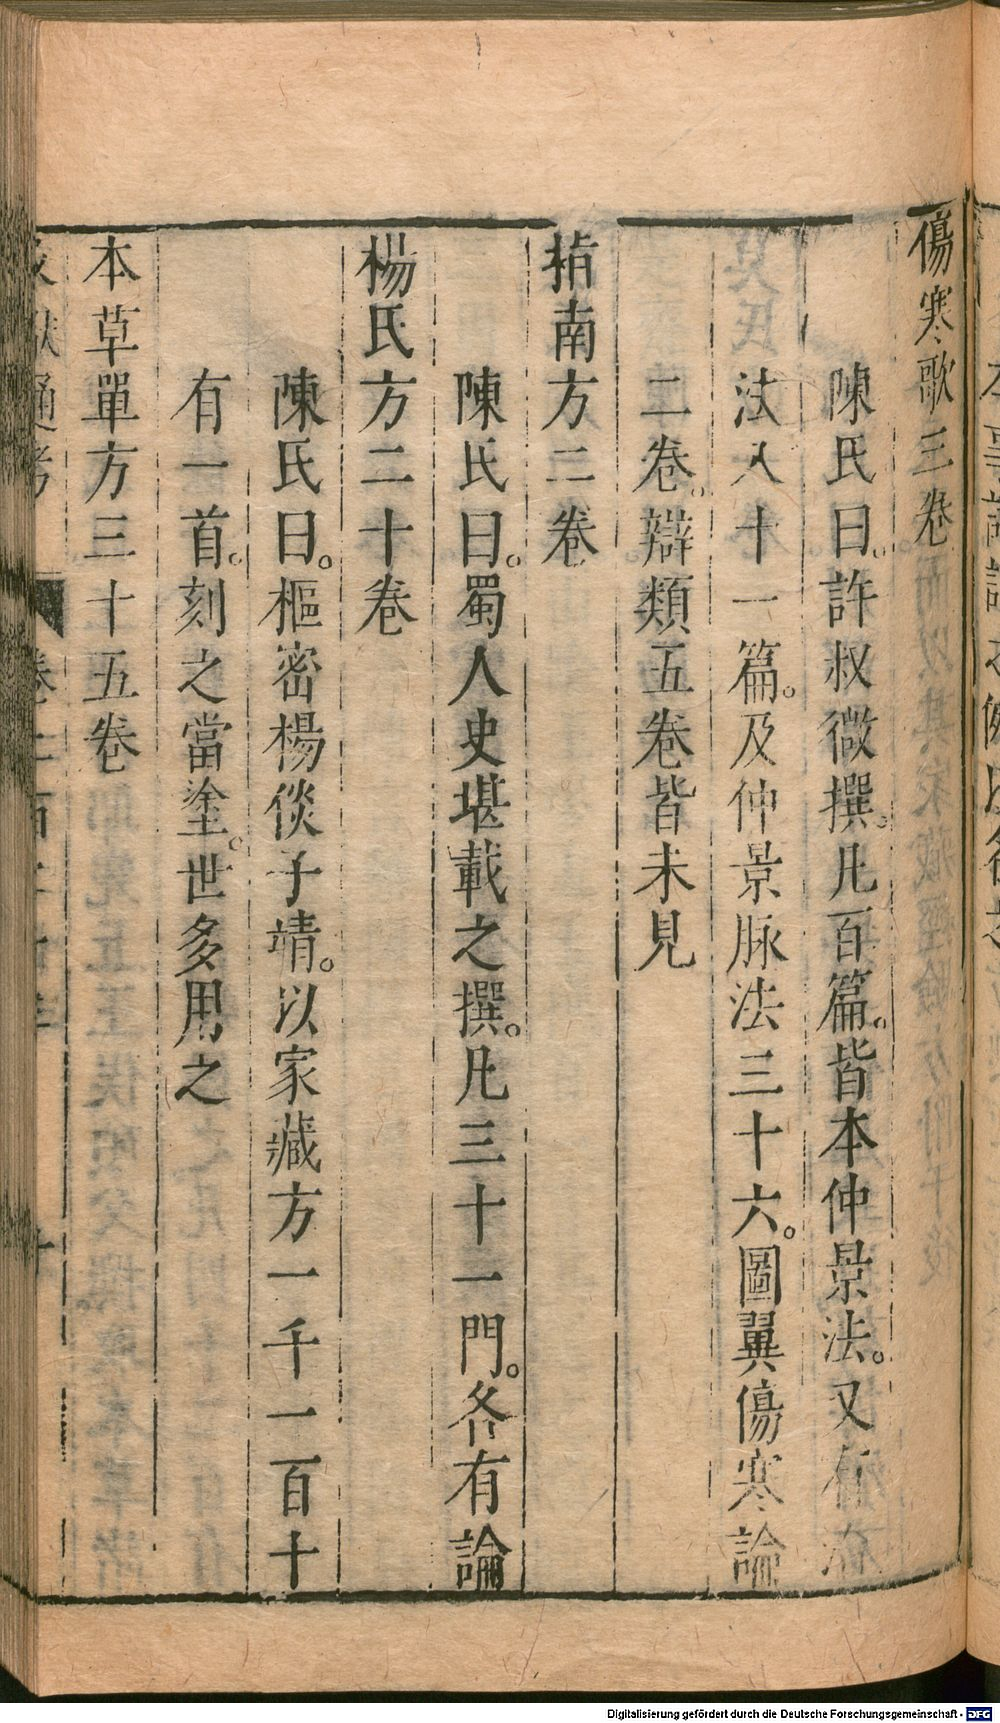 傷寒歌三卷
陳氏曰。許叔微撰。凡百篇。皆本仲景法。又有治
法八十一篇。及仲景脉法三十六。圖翼傷寒論
二卷。辯類五卷皆未見
指南方二卷
陳氏曰。蜀人史堪載之撰。凡三十一門。各有論
楊氏方二十卷
陳氏曰。樞密楊倓子靖。以家藏方一千一百十
有一首。刻之當塗。世多用之
本草單方三十五卷
Digitalisierung gefördert durch die Deutsche Forschungsgemeinschaft - DFG